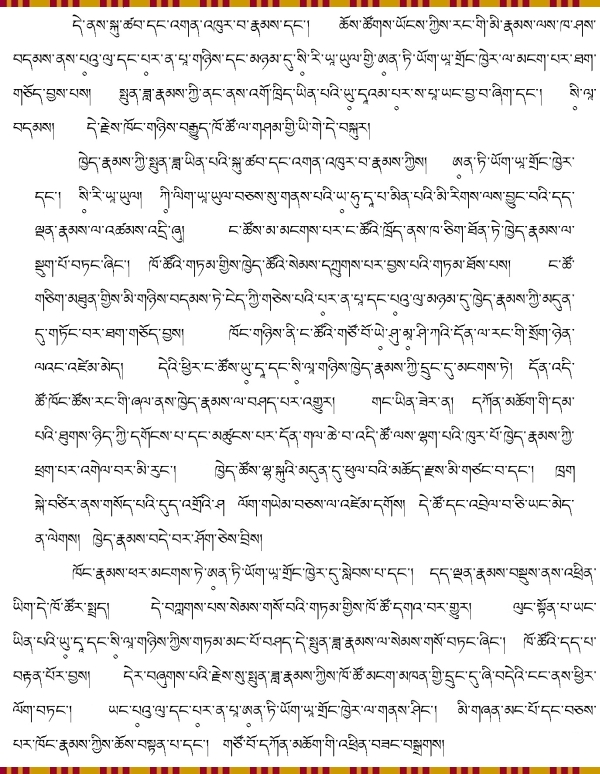 དེ་ནས་སྐུ་ཚབ་དང་འགན་འཁུར་བ་རྣམས་དང་། ཆོས་ཚོགས་ཡོངས་ཀྱིས་རང་གི་མི་རྣམས་ལས་ཁ་ཤས་
བདམས་ནས་པའུ་ལུ་དང་པར་ན་པཱ་གཉིས་དང་མཉམ་དུ་སི་རི་ཡཱ་ཡུལ་གྱི་ཨན་ཏི་ཡོག་ཡཱ་གྲོང་ཁྱེར་ལ་མངག་པར་ཐག་
གཅོད་བྱས་པས། སྤུན་ཟླ་རྣམས་ཀྱི་ནང་ནས་འགོ་ཁྲིད་ཡིན་པའི་ཡུ་དཱའམ་པར་ས་པཱ་ཡང་བྱ་བ་ཞིག་དང་། སི་ལཱ་
བདམས། དེ་རྗེས་ཁོང་གཉིས་བརྒྱུད་ཁོ་ཚོ་ལ་གཤམ་གྱི་ཡི་གེ་དེ་བསྐུར།
ཁྱེད་རྣམས་ཀྱི་སྤུན་ཟླ་ཡིན་པའི་སྐུ་ཚབ་དང་འགན་འཁུར་བ་རྣམས་ཀྱིས། ཨན་ཏི་ཡོག་ཡཱ་གྲོང་ཁྱེར་
དང་། སི་རི་ཡཱ་ཡུལ། ཀི་ལིག་ཡཱ་ཡུལ་བཅས་སུ་གནས་པའི་ཡ་ཧུ་དཱ་པ་མིན་པའི་མི་རིགས་ལས་བྱུང་བའི་དད་
ལྡན་རྣམས་ལ་འཚམས་འདྲི་ཞུ། ང་ཚོས་མ་མངགས་པར་ང་ཚོའི་ཁྲོད་ནས་ཁ་ཅིག་ཐོན་ཏེ་ཁྱེད་རྣམས་ལ་
སྡུག་པོ་བཏང་ཞིང་། ཁོ་ཚོའི་གཏམ་གྱིས་ཁྱེད་ཚོའི་སེམས་དཀྲུགས་པར་བྱས་པའི་གཏམ་ཐོས་པས། ང་ཚོ་
གཅིག་མཐུན་གྱིས་མི་གཉིས་བདམས་ཏེ་ངེད་ཀྱི་གཅེས་པའི་པར་ན་པཱ་དང་པའུ་ལུ་མཉམ་དུ་ཁྱེད་རྣམས་ཀྱི་མདུན་
དུ་གཏོང་བར་ཐག་གཅོད་བྱས། ཁོང་གཉིས་ནི་ང་ཚོའི་གཙོ་བོ་ཡེ་ཤུ་མཱ་ཤི་ཀའི་དོན་ལ་རང་གི་སྲོག་ཉེན་
ལའང་འཛེམ་མེད། དེའི་ཕྱིར་ང་ཚོས་ཡུ་དཱ་དང་སི་ལཱ་གཉིས་ཁྱེད་རྣམས་ཀྱི་དྲུང་དུ་མངགས་ཏེ། དོན་འདི་
ཚོ་ཁོང་ཚོས་རང་གི་ཞལ་ནས་ཁྱེད་རྣམས་ལ་བཤད་པར་འགྱུར། གང་ཡིན་ཟེར་ན། དཀོན་མཆོག་གི་དམ་
པའི་ཐུགས་ཉིད་ཀྱི་དགོངས་པ་དང་མཚུངས་པར་དོན་གལ་ཆེ་བ་འདི་ཚོ་ལས་ལྷག་པའི་ཁུར་པོ་ཁྱེད་རྣམས་ཀྱི་
ཕྲག་པར་འགེལ་བར་མི་རུང་། ཁྱེད་ཚོས་ལྷ་སྐུའི་མདུན་དུ་ཕུལ་བའི་མཆོད་རྫས་མི་གཙང་བ་དང་། ཁྲག
སྐེ་བཙིར་ནས་གསོད་པའི་དུད་འགྲོའི་ཤ ལོག་གཡེམ་བཅས་ལ་འཛེམ་དགོས། དེ་ཚོ་དང་འབྲེལ་བ་ཅི་ཡང་མེད་
ན་ལེགས། ཁྱེད་རྣམས་བདེ་བར་ཤོག་ཅེས་བྲིས།
ཁོང་རྣམས་ཕར་མངགས་ཏེ་ཨན་ཏི་ཡོག་ཡཱ་གྲོང་ཁྱེར་དུ་སླེབས་པ་དང་། དད་ལྡན་རྣམས་བསྡུས་ནས་འཕྲིན་
ཡིག་དེ་ཁོ་ཚོར་སྤྲད། དེ་བཀླགས་པས་སེམས་གསོ་བའི་གཏམ་གྱིས་ཁོ་ཚོ་དགའ་བར་གྱུར། ལུང་སྟོན་པ་ཡང་
ཡིན་པའི་ཡུ་དཱ་དང་སི་ལཱ་གཉིས་ཀྱིས་གཏམ་མང་པོ་བཤད་དེ་སྤུན་ཟླ་རྣམས་ལ་སེམས་གསོ་བཏང་ཞིང་། ཁོ་ཚོའི་དད་པ་
བརྟན་པོར་བྱས། དེར་བཞུགས་པའི་རྗེས་སུ་སྤུན་ཟླ་རྣམས་ཀྱིས་ཁོ་ཚོ་མངག་མཁན་གྱི་དྲུང་དུ་ཞི་བདེའི་ངང་ནས་ཕྱིར་
ལོག་བཏང་། ཡང་པའུ་ལུ་དང་པར་ན་པཱ་ཨན་ཏི་ཡོག་ཡཱ་གྲོང་ཁྱེར་ལ་གནས་ཤིང་། མི་གཞན་མང་པོ་དང་བཅས་
པར་ཁོང་རྣམས་ཀྱིས་ཆོས་བསྟན་པ་དང་། གཙོ་བོ་དཀོན་མཆོག་གི་འཕྲིན་བཟང་བསྒྲགས།